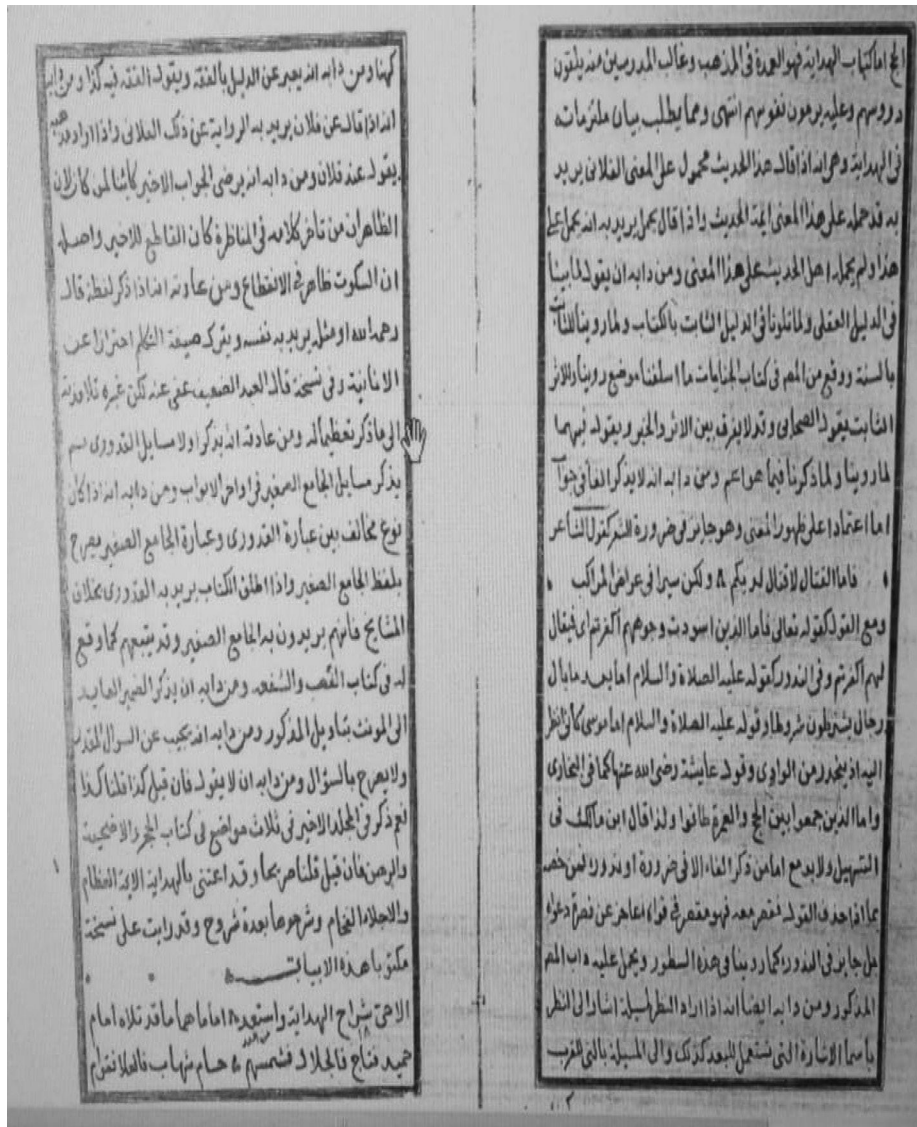 الحج اما كتاب الهداية فهو العمدة فى المذهب وغالب المدرسين منه يلقون
دروسهم وعليه يرمون نفوسهم انتهى ومما يطلب بيان ملتزماته
فى الهداية وهى انه اذا قال هذا الحديث محمول على المعنى الفلانى يريد
به قد حمله على هذا المعنى ايمة الحديث واذا قال يحمل يريد به انه يحمل على
هذا ولم يحمله اهل الحديث على هذا المعنى ومن دابه ان يقول لما بينا
فى الدليل العقلى ولما تلونا فى الدليل الثابت بالكتاب ولما روينا للثابت
بالسنة ووقع من المص فى كتاب الجنايات ما اسلفنا موضع روينا وللاثر
الثابت بقول الصحابى وقد لا يفرق بين الاثر والخبر ويقول فيهما
لما روينا ولما ذكرنا فيما هو اعم ومن دابه انه لا يذكر الفا فى جواب
اما اعتمادا على ظهور المعنى وهو جايز فى ضرورة الشعر كقول الشاعر
فاما القتال لا قتال لديكم ۸ ولكن سيرا فى عراض المواكب
ومع القول كقوله تعالى فاما الذين اسودت وجوههم اكفرتم اى فيقال
لهم اكفرتم وفى الندور كقوله عليه الصلاة والسلام اما بعد ما بال
رجال يشترطون شروطا وقوله عليه الصلاة والسلام اما موسى كانى انظر
اليه اذ ينحدر من الوادى وقول عايشة رضى الله عنها كما فى البخارى
واما الذين جمعوا بين الحج والعمرة طافوا ولذا قال ابن مالك فى
التسهيل ولا بد مع اما من ذكر الفاء الا فى ضرورة او ندور فمن خصه
بما اذا حذف القول فقصر معه فهو مقصر فى قواه عاجز عن نصرة دعواه
بل جايز فى الندور كما روينا فى هذه السطور ويحمل عليه داب المص
المذكور ومن دابه ايضا انه اذا اراد النظر لمسيلة اشار الى النظر
باسما الاشارة التى تستعمل للبعد كذلك والى المسيلة بالتى للقرب
كهذا ومن دابه انه يعبر عن الدليل بالفقه ويقول الفقه فيه كذا ومن دابه
انه اذا قال عن فلان يريد به الرواية عن ذلك الفلانى واذا اراد مذهبه
يقول عند فلان ومن دابه انه يرضى الجواب الاخير كائنا لمن كان لان
الظاهر ان من تاخر كلامه فى المناظرة كان القاطع للاخير واصله
ان السكوت ظاهر فى الانقطاع ومن عادته انه اذا ذكر لفظة قال
رحمه الله او مثله يريد به نفسه ويترك صيغة التكلم احترازا عن
الانانية وفى نسخة قال العبد الضعيف عفى عنه لكن غيره تلامذته
الى ما ذكر تعظيما له ومن عادته انه يذكر اولا مسايل القدورى ثم
يذكر مسايل الجامع الصغير فى اواخر الابواب ومن دابه انه اذا كان
نوع مخالفة بين عبارة القدورى وعبارة الجامع الصغير يصرح
بلفظ الجامع الصغير واذا اطلق الكتاب يريد به القدورى بخلاف
المشايخ فانهم يريدون به الجامع الصغير وقد يتبعهم كما وقع
له فى كتاب الغصب والشفعه ومن دابه ان يذكر الضمير العايد
الى المونث بتاويل المذكور ومن دابه انه يجيب عن السوال المقدر
ولا يصرح بالسؤال ومن دابه ان لا يقول فان قيل كذا قلنا كذا
نعم ذكر فى المجلد الاخير فى ثلاث مواضع فى كتاب الحجر والاضحية
والرهن فان قيل قلنا صريحا وقد اعتنى بالهداية الايمة العظام
والاجلاء الفخام وشرحوها بعدة شروح وقد رايت على نسخة
مكتوبا هذه الابيات
الاحق شراح الهداية واستعد ۸ اماما هما ما قد تلاه امام
حميد فتاج فالجلال فشمسهم ۸ حسام شهاب فالعلا فقوام